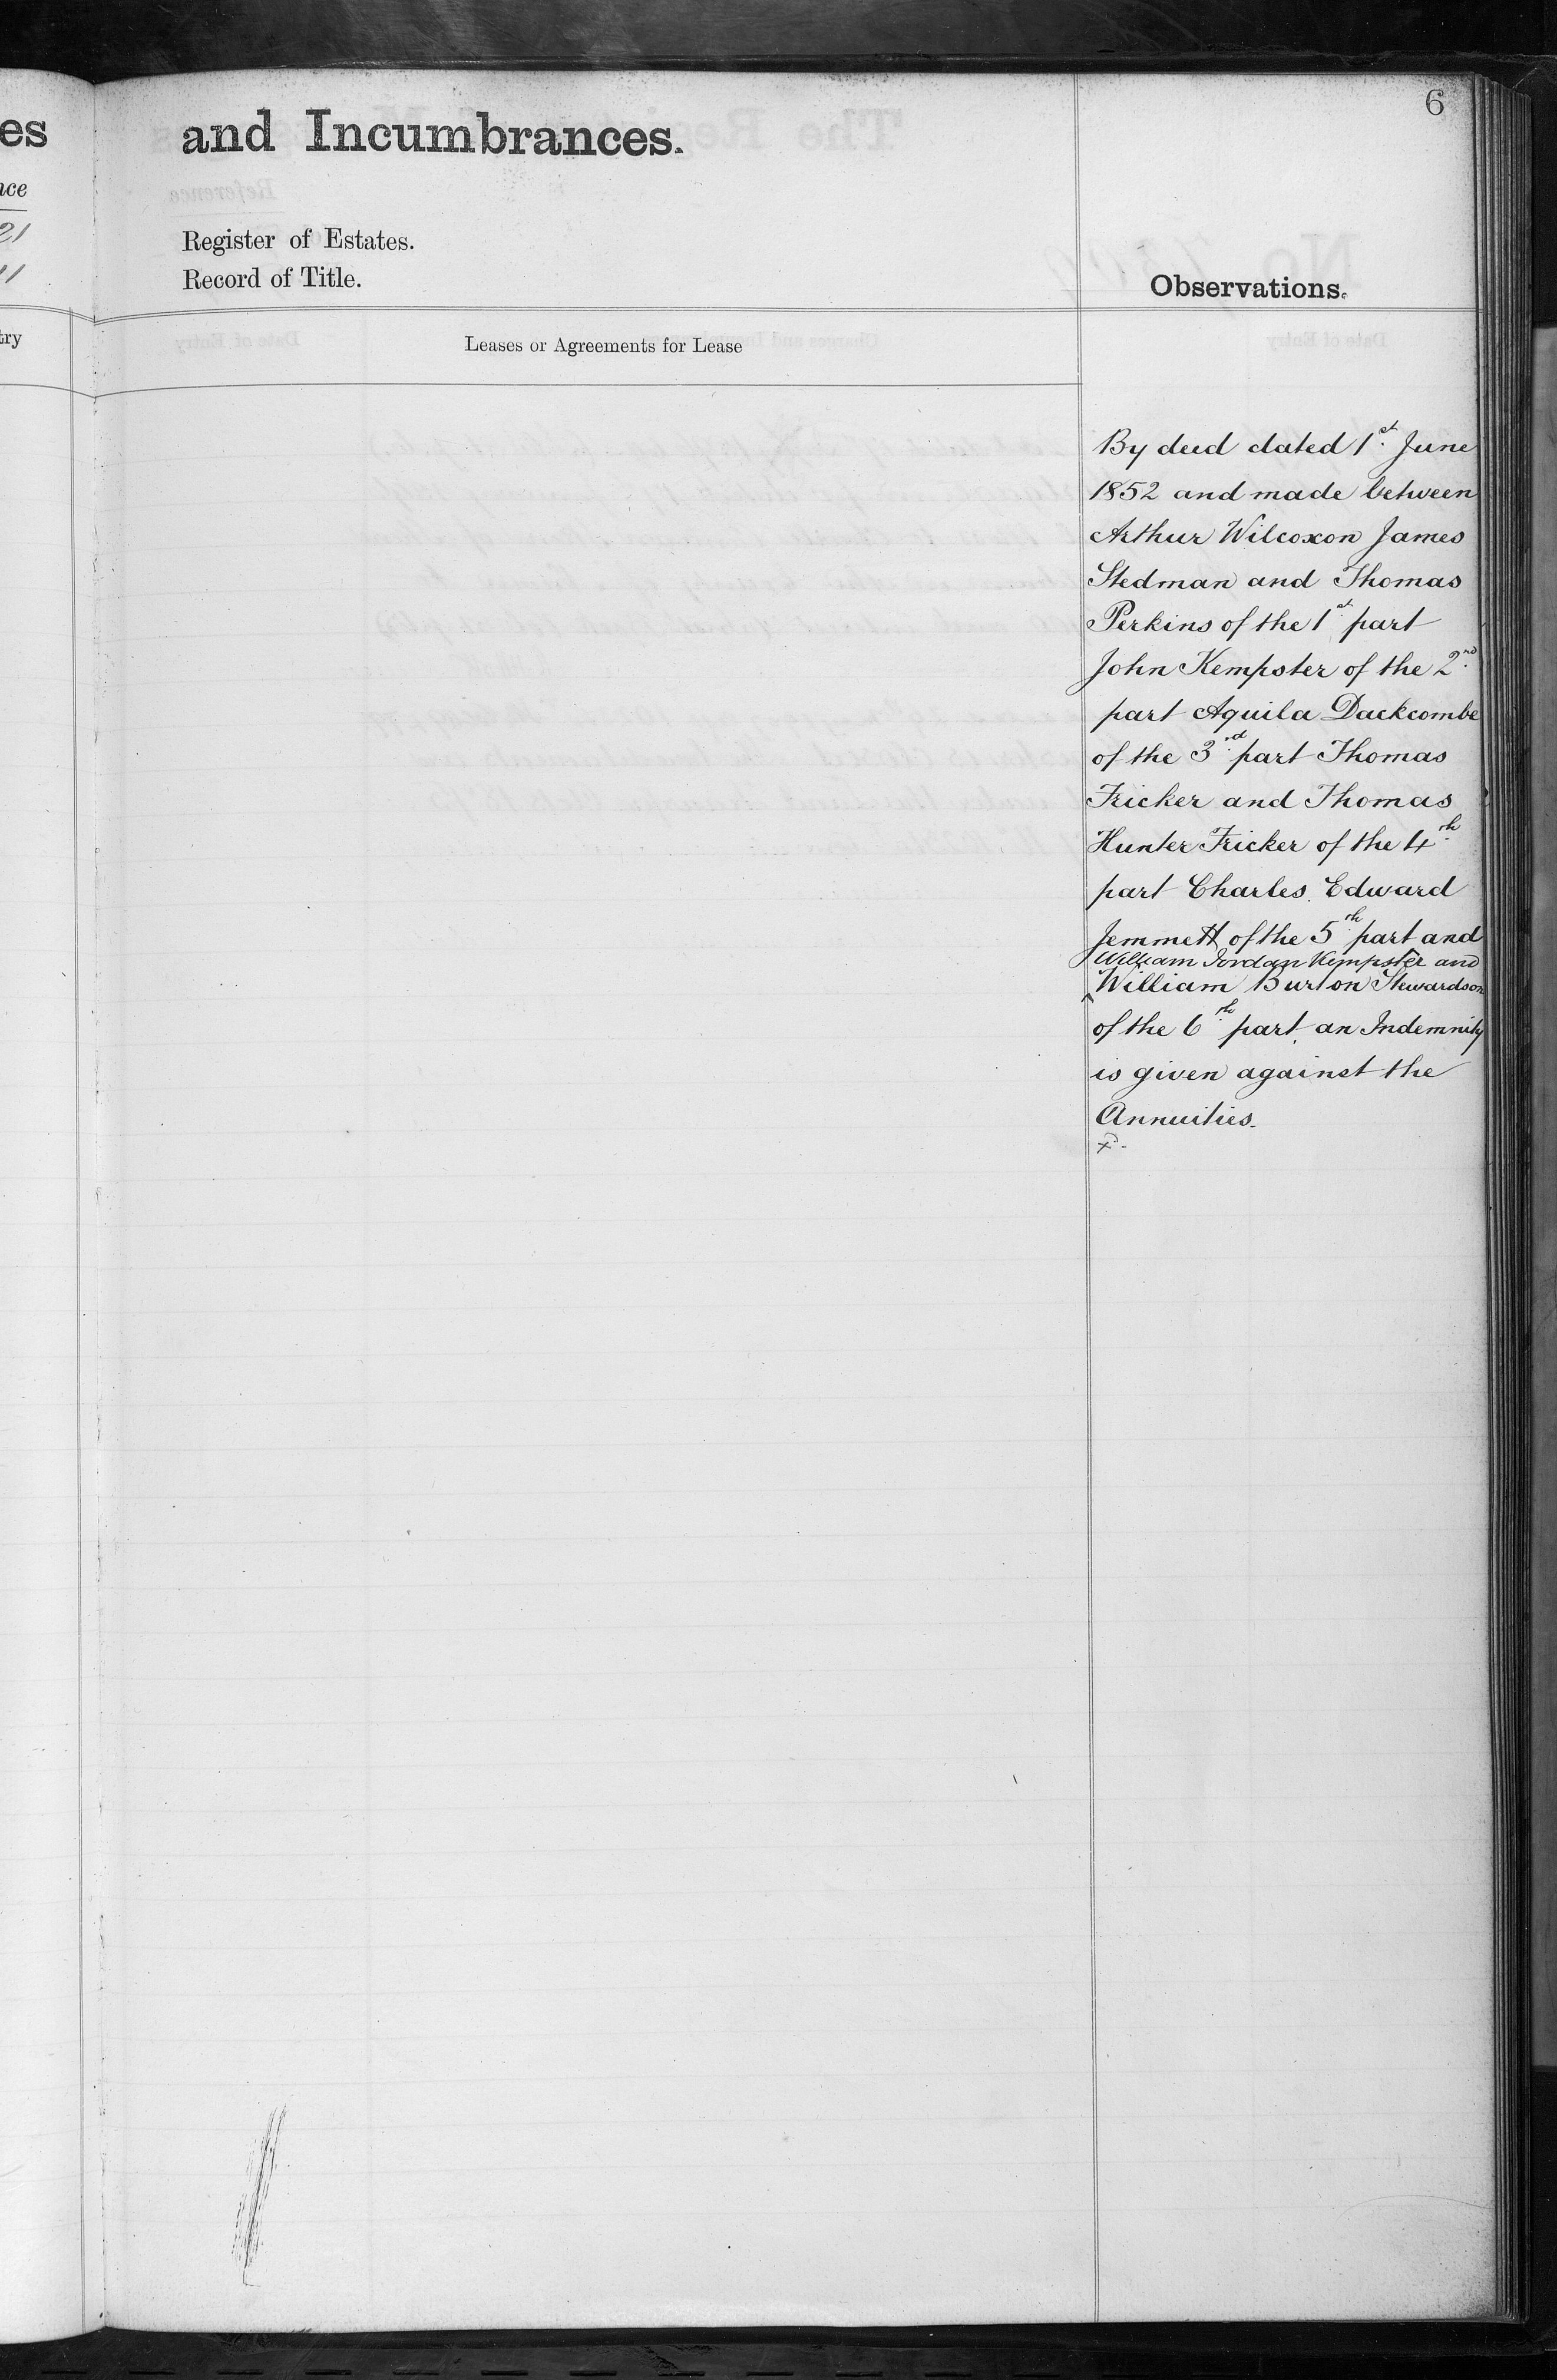 es
nce
21
11
try
6
and Incumbrances.
Register of Estates.
Record of Title.
Observations.
Leases or Agreements for Lease
By deed dated 1st June
1852 and made between
Arthur Wilcoxon James
Stedman and Thomas
Perkins of the 1st part
John Kempster of the 2nd
part Aquila Dackcombe
of the 3rd part Thomas
Fricker and Thomas
Hunter Fricker of the 4th
part Charles Edward
Jemmett of the 5th part and
William Jordan Kempster and
William Burton Stewardson
of the 6th part an Indemnity
is given against the
Annuities.